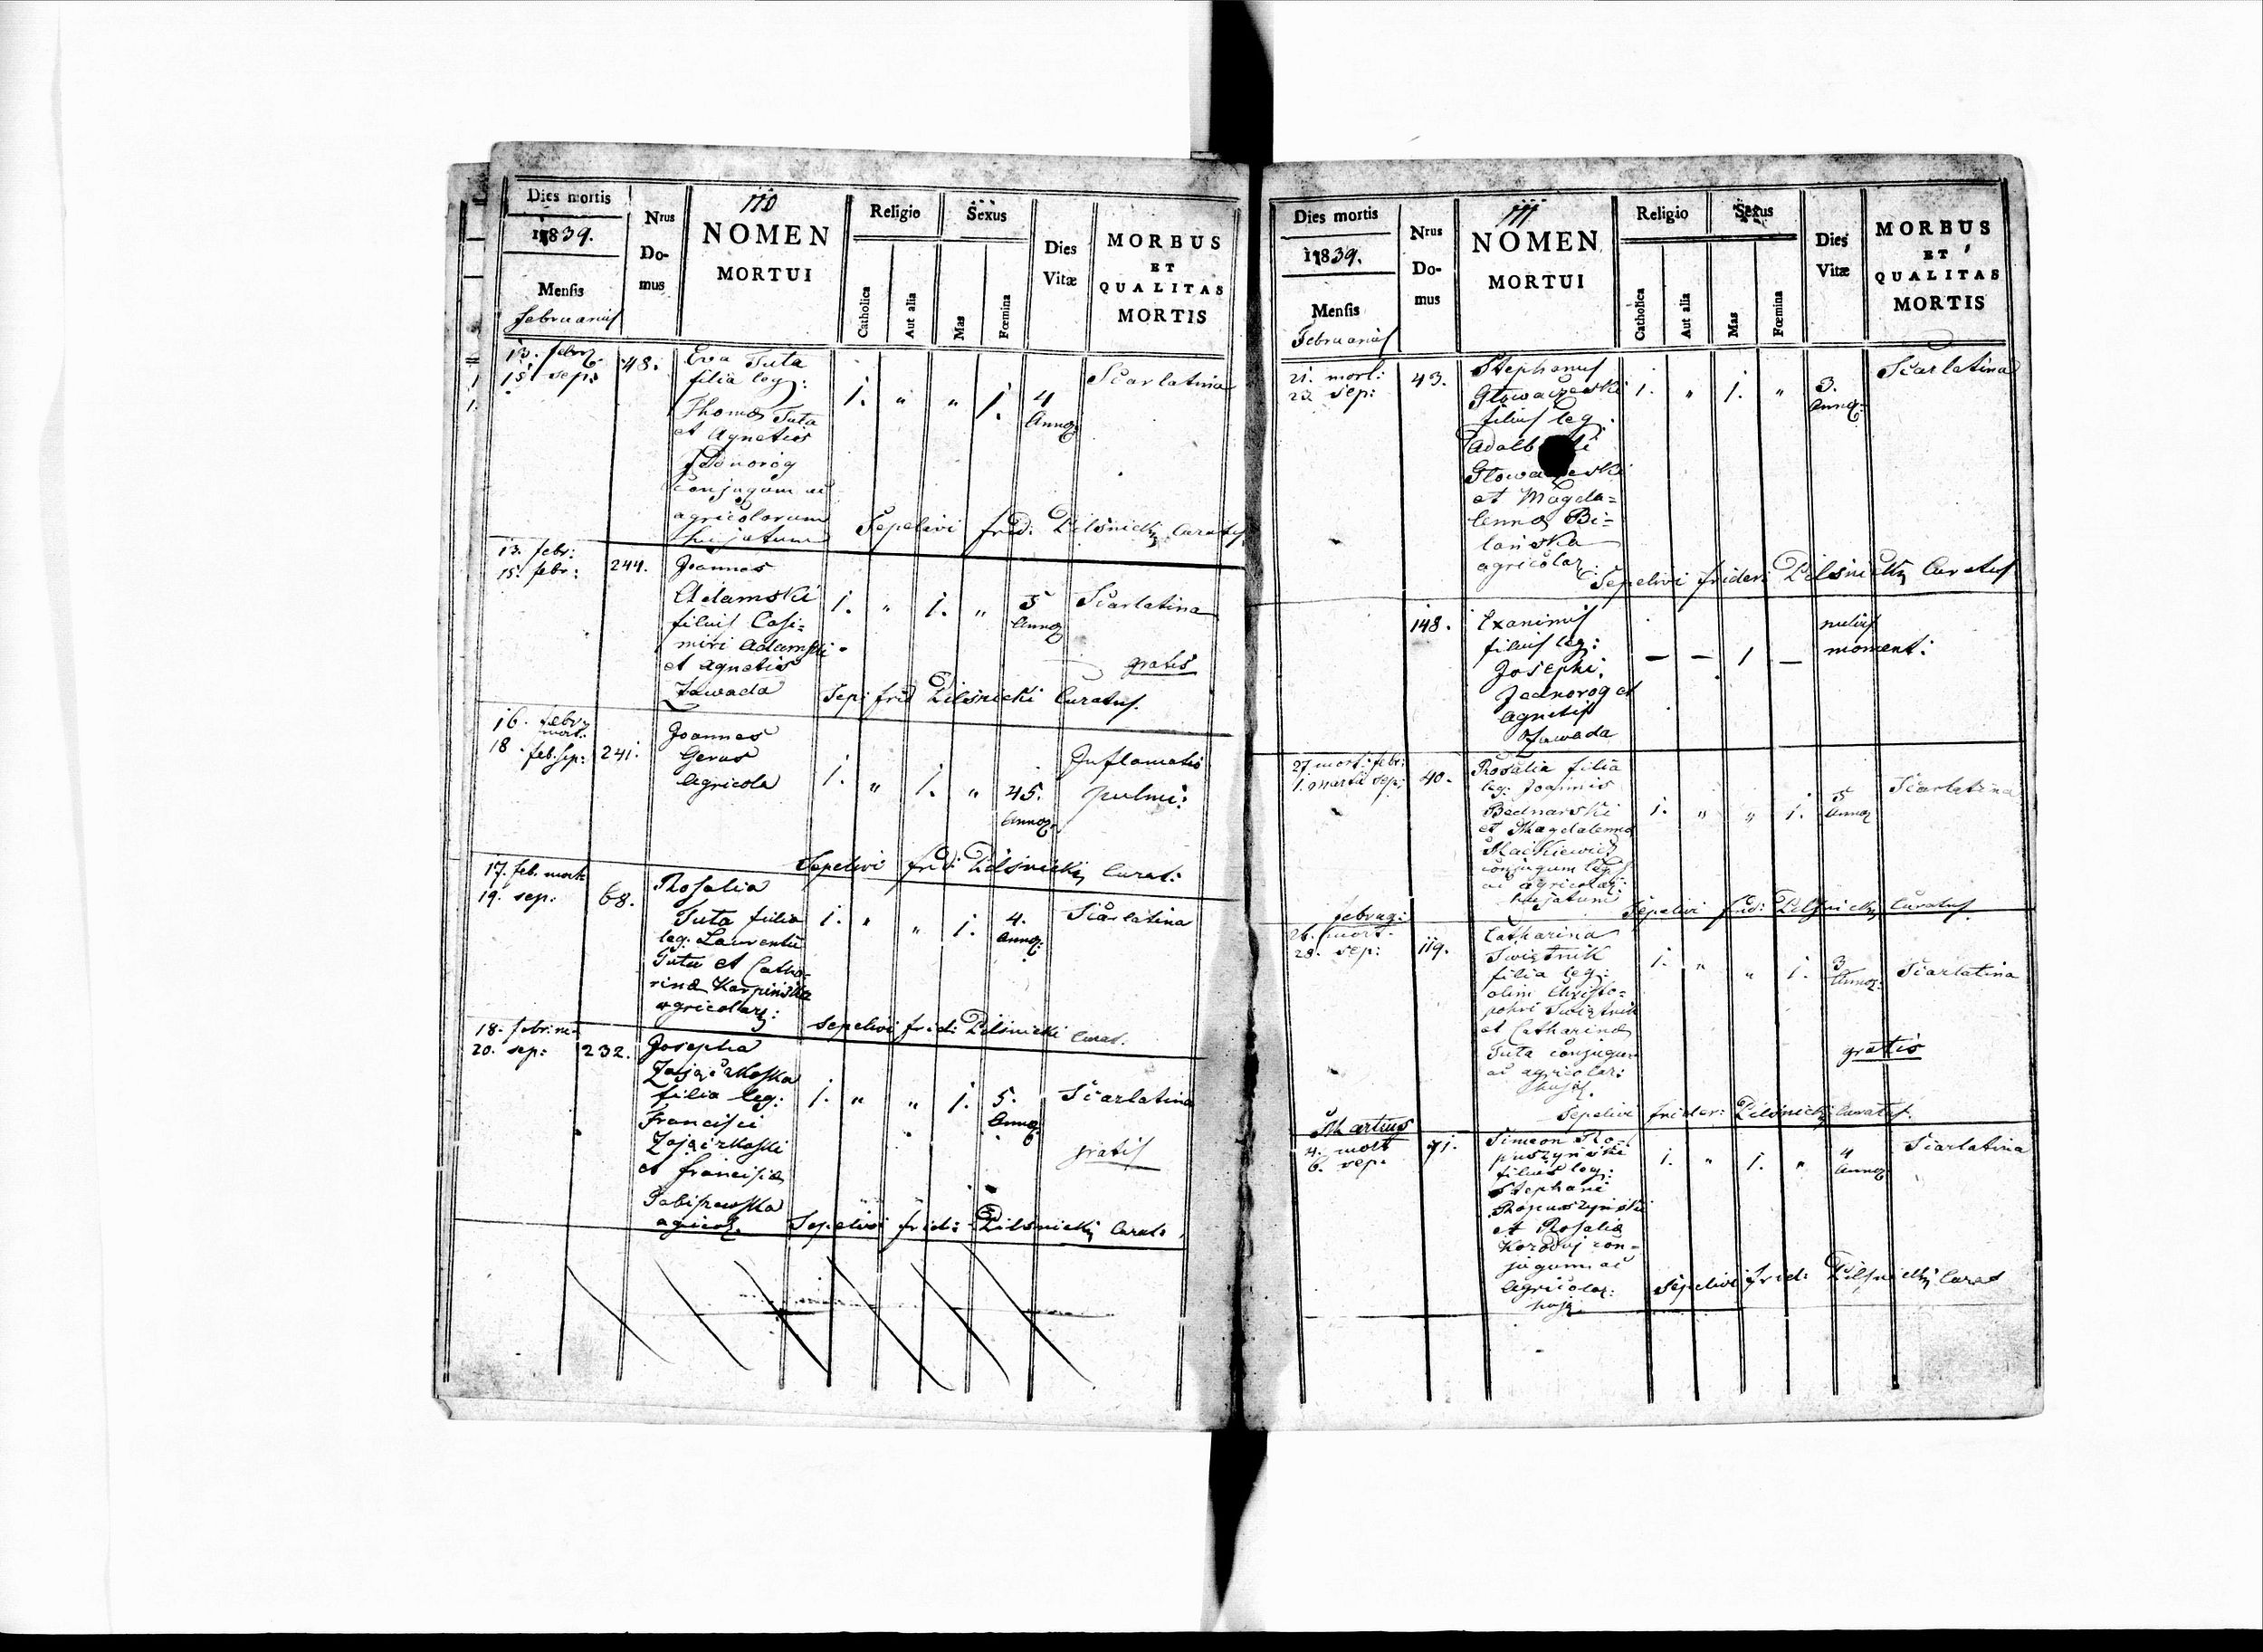 Dies mortis
1839.
Mensis
Februarius
Nrus
Do-
mus
110
NOMEN
MORTUI
Religio
Catholica
Aut alia
Sexus
Mas
Fœmina
Dies
Vitæ
MORBUS
ET
QUALITAS
MORTIS
13. febr
15 sep:
48.
Eva Tuta
filia leg:
Thomæ Tuta
et Agnetis
Jednorog
conjugum ac
agricolarum
hujatum
1. " " 1.
4
Annor:
Scarlatina
Sepelivi frid: Pilsnicki Curatus
13. febr:
15. febr:
244.
Joannes
Adamski
filius Casi=
miri Adamski
et Agnetis
Zawada
1. " 1. "
5
Annor
Scarlatina
gratis
Sep: frid Pilsnicki Curatus.
16. febr
mort.
18. feb. sep:
241.
Joannes
Gerus
Agricola
1. " 1. "
45.
Annor.
Inflamatio
pulmi:
Sepelivi frid: Pilsnicki Curat:
17. feb. mort
19. sep.
68.
Rosalia
Tuta filia
leg: Laurentii
Tuta et Catha-
rinæ Karpinska
agricolar:
1. " " 1.
4.
Annor:
Scarlatina
Sepelivi frid: Pilsnicki Curat.
18. febr: m
20. sep:
232.
Josepha
Zajączkoska
filia leg:
Francisci
Zajączkoski
et Francisca
agricol.
1. " " 1.
5.
Annor
Scarlatina
gratis
Sepelivi frid: Pilsnicki Curat.
Dies mortis
1839.
Mensis
Februarius
Nrus
Do-
mus
111
NOMEN
MORTUI
Religio
Catholica
Aut alia
Sexus
Mas
Fœmina
Dies
Vitæ
MORBUS
ET
QUALITAS
MORTIS
21. mort:
23. sep:
43.
Stephanus
Głowaczewski
filius leg.
Adalb ti
Głowa ewski
et Magda=
lennæ Bi=
lańska
agricolar:
1. " 1. "
3.
Annor:
Scarlatina
Sepelivi frider: Pilsnicki Curatus
148.
Exanimus
filius leg:
Josephi
Jednorog et
Agnetis
Zawada
— — 1 —
nulius
moment:
27. mort: febr:
1. Martii sep:
40.
Rosalia filia
leg: Joannis
Bednarski
et Magdalenna
Mackiewicz
conjugum leg
ac agricolar:
hujatum
1. " " 1.
5
Annor
Scarlatina
Sepelivi frid: Pilsnicki Curatus
februar:
26. mort.
28. sep:
119.
Catharina
Świątnik
filia leg:
olim Christo=
phori Świątnik
et Catharinæ
Tuta conjugum
ac agricolar:
hujat.
1. " " 1.
3
Annor:
Scarlatina
gratis
Sepelivi frider: Pilsnicki Curatus.
Martius
4. mort
6. sep.
71.
Simeon Ro-
puszynski
filius leg:
Stephani
Ropuszynski
et Rosalia
con-
jugum ac
agricolar:
hujat.
1. " 1. "
4
Annor
Scarlatina
Sepelivi frid: Pilsnicki Curat